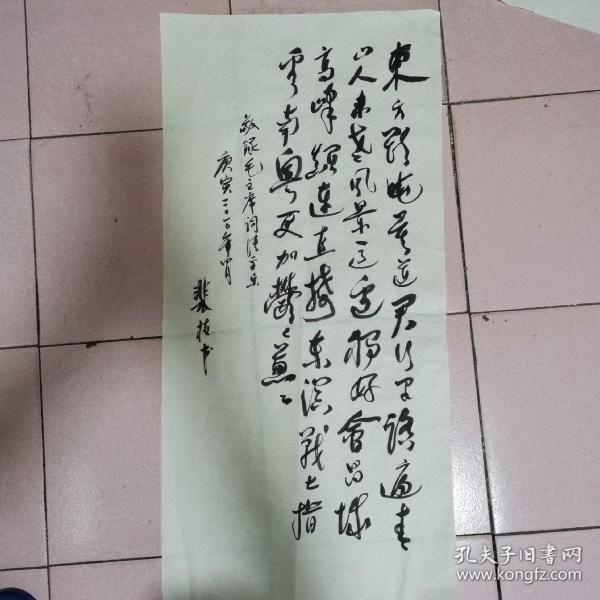 東方欲曉莫道君行早踏遍青
山人未老風景這邊獨好會昌城
高峰顛連直接東溟戰士指
看南粵更加鬱々蔥々
敬録毛主席詞清平乐
庚寅二〇一〇年
裴植书
孔夫子旧书网
www.kongfz.com